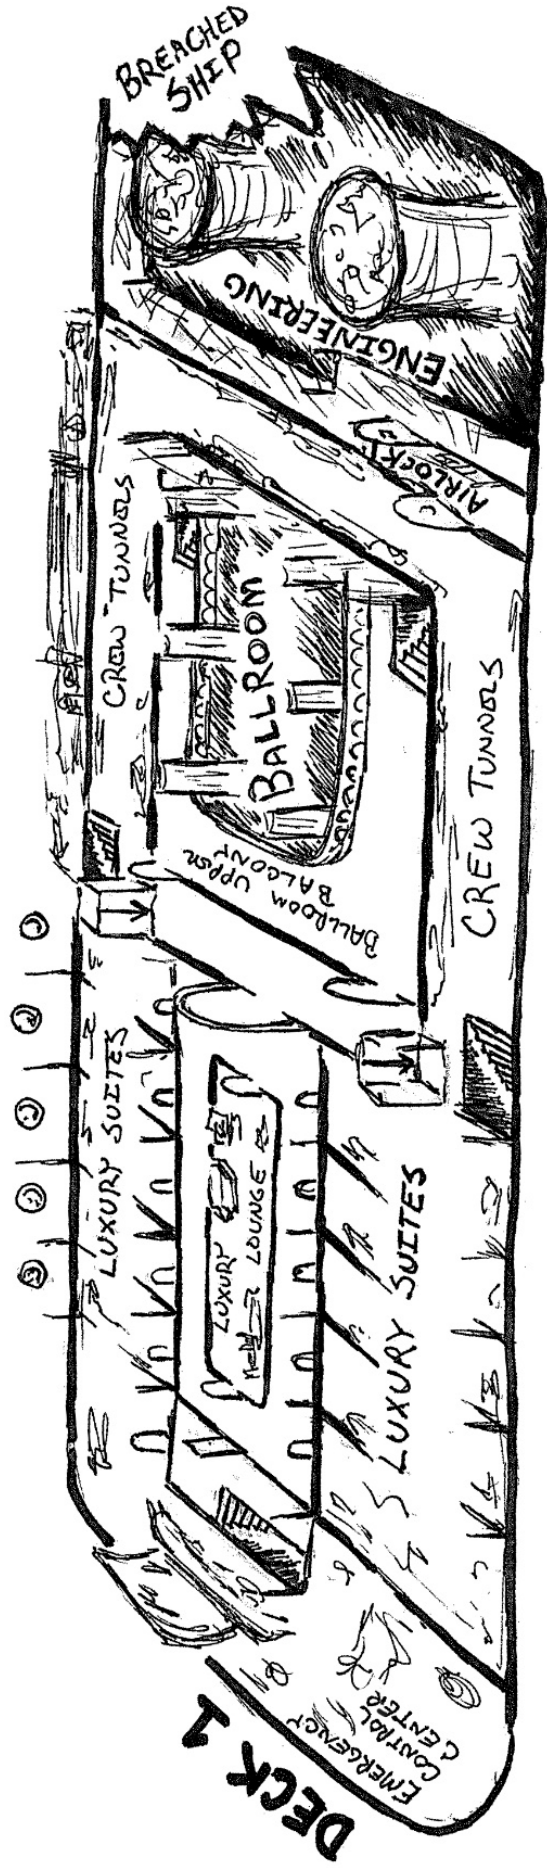 BREACHED
SHIP
ENGINEERING
AIRLOCK
CREW TUNNELS
BALLROOM
BALLROOM UPPER
BALCONY
CREW TUNNELS
LUXURY SUITES
LUXURY
LOUNGE
LUXURY SUITES
EMERGENCY
CONTROL
CENTER
DECK 1